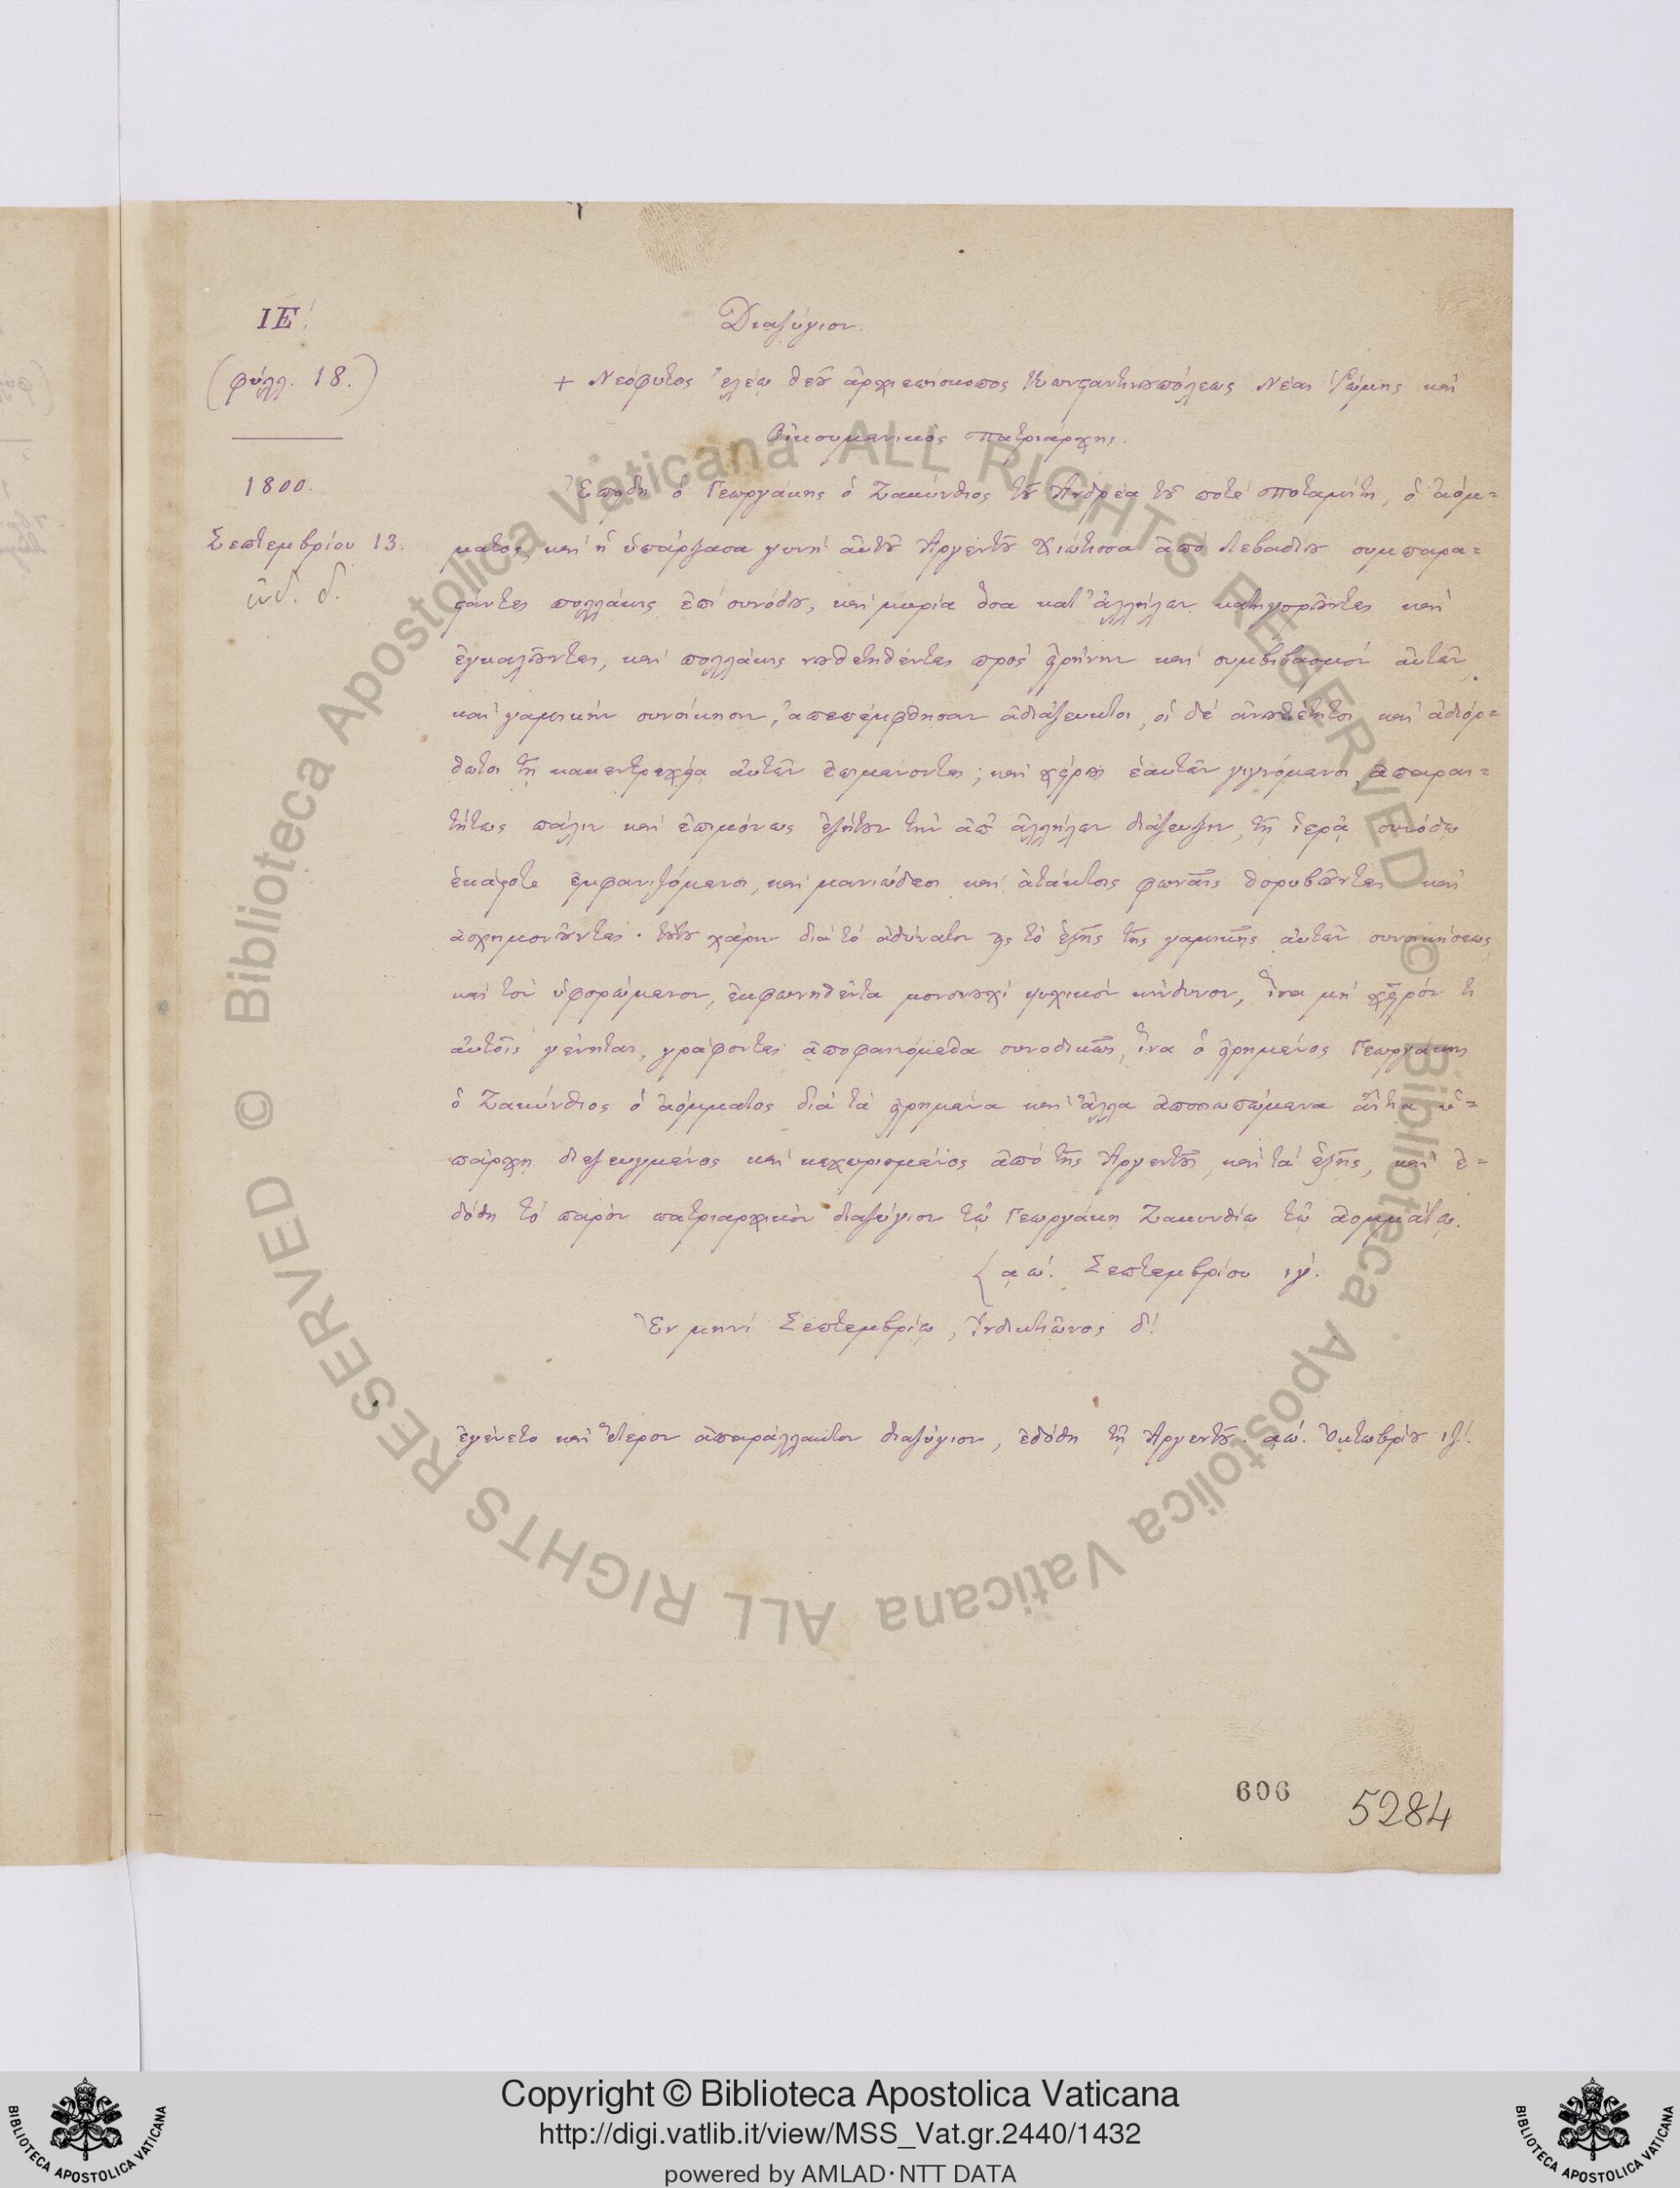 ΙΕ΄.
Διαζύγιον.
(φύλλ. 18.)
+ Νεόφυτος ἐλέῳ θεοῦ ἀρχιεπίσκοπος Κωνσταντινουπόλεως Νέας Ῥώμης καὶ
Οἰκουμενικὸς πατριάρχης.
1800.
Σεπτεμβρίου 13.
ἰνδ. δ.
Ἐπειδὴ ὁ Γεωργάκης ὁ Ζακύνθιος τοῦ Ἀνδρέα τοῦ ποτὲ ποταμίτη, ὁ ἀόμ=
ματος, καὶ ἡ ὑπάρξασα γυνὴ αὐτοῦ Ἀργεντοῦ Χιώτισσα ἀπὸ Λεβαδίου συμπαρα=
στάντες πολλάκις ἐπὶ συνόδου, καὶ μυρία ὅσα κατ' ἀλλήλων κατηγοροῦντες καὶ
ἐγκαλοῦντες, καὶ πολλάκις νουθετηθέντες πρὸς εἰρήνην καὶ συμβιβασμὸν αὐτῶν,
καὶ γαμικὴν συνοίκησιν, ἀπεπέμφθησαν ἀδιάζευκτοι, οἱ δὲ ἀνουθέτητοι καὶ ἀδιόρ=
θωτοι τῇ κακεντρεχείᾳ αὐτῶν ἐπιμένοντες, καὶ χείρους ἑαυτῶν γιγνόμενοι, ἀπαραι=
τήτως πάλιν καὶ ἐπιμόνως ἐζήτουν τὴν ἀπ' ἀλλήλων διάζευξιν, τῇ ἱερᾷ συνόδῳ
ἑκάστοτε ἐμφανιζόμενοι, καὶ μανιώδεσι καὶ ἀτάκτοις φωναῖς θορυβοῦντες καὶ
ἀσχημονοῦντες· τούτου χάριν διὰ τὸ ἀδύνατον εἰς τὸ ἑξῆς τῆς γαμικῆς αὐτῶν συνοικήσεως,
καὶ τὸν ὑφορώμενον, ἐκφωνηθέντα μονονουχὶ ψυχικὸν κίνδυνον, ἵνα μὴ χεῖρόν τι
αὐτοῖς γένηται, γράφοντες ἀποφαινόμεθα συνοδικῶς, ἵνα ὁ εἰρημένος Γεωργάκης
ὁ Ζακύνθιος ὁ ἀόμματος διὰ τὰ εἰρημένα καὶ ἄλλα ἀποσιωπώμενα αἴτια ὑ=
πάρχῃ διεζευγμένος καὶ κεχωρισμένος ἀπὸ τῆς Ἀργεντοῦς, καὶ τὰ ἑξῆς, καὶ ἐ=
δόθη τὸ παρὸν πατριαρχικὸν διαζύγιον τῷ Γεωργάκῃ Ζακυνθίῳ τῷ ἀομμάτῳ.
͵αω΄. Σεπτεμβρίου ιγ΄.
Ἐν μηνὶ Σεπτεμβρίῳ, Ἰνδικτιῶνος δ΄.
ἐγένετο καὶ ἕτερον ἀπαράλλακτον διαζύγιον, ἐδόθη τῇ Ἀργεντοῦ ͵αω΄. Ὀκτωβρίου ιζ΄.
606
5284
© Biblioteca Apostolica Vaticana ALL RIGHTS RESERVED
© Biblioteca Apostolica Vaticana ALL RIGHTS RESERVED
Copyright © Biblioteca Apostolica Vaticana
http://digi.vatlib.it/view/MSS_Vat.gr.2440/1432
powered by AMLAD·NTT DATA
BIBLIOTECA APOSTOLICA VATICANA
BIBLIOTECA APOSTOLICA VATICANA